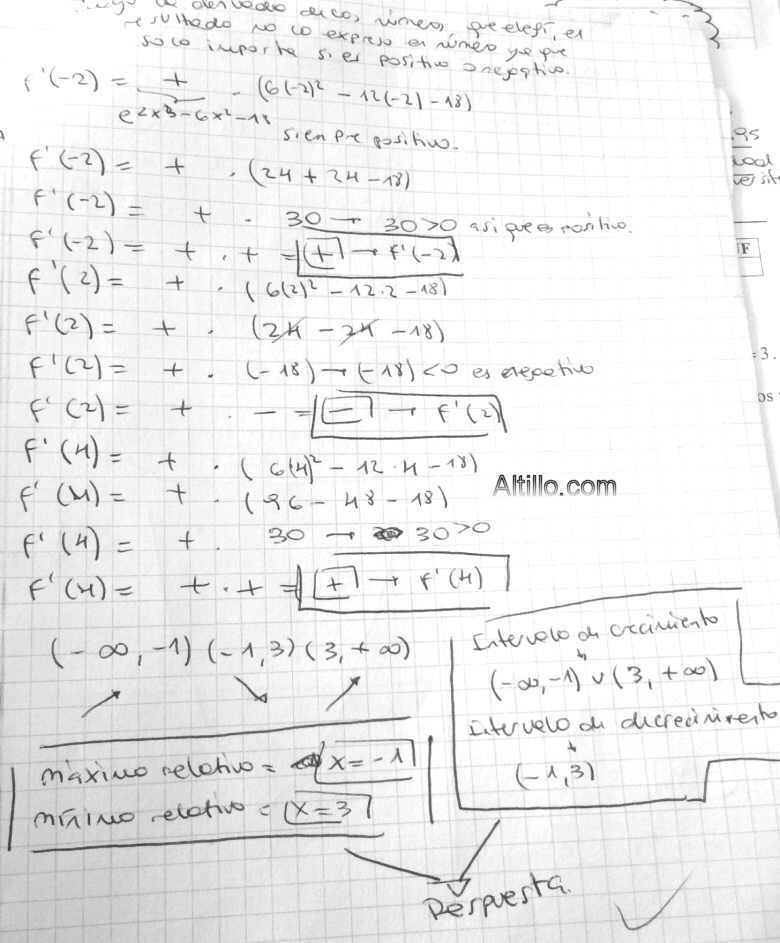 de derivada, números que elegí, el
resultado no lo expreso en número ya que
solo importa si es positivo o negativo.
f'(-2) = + · (6(-2)² - 12(-2) - 18)
e^2x³-6x²-18
siempre positivo.
f'(-2) = + · (24 + 24 - 18)
f'(-2) = + · 30 → 30>0 así que es positivo.
f'(-2) = + · + = (+) → f'(-2)
f'(2) = + · (6(2)² - 12·2 - 18)
f'(2) = + · (24 - 24 - 18)
f'(2) = + · (-18) → (-18) < 0 es negativo
f'(2) = + · - = (-) → f'(2)
f'(4) = + · (6(4)² - 12·4 - 18)
f'(4) = + · (96 - 48 - 18)
Altillo.com
f'(4) = + · 30 → 30>0
f'(4) = + · + = (+) → f'(4)
(-∞, -1) (-1, 3) (3, +∞)
↗ ↘ ↗
Intervalo de crecimiento
↓
(-∞, -1) ∪ (3, +∞)
Intervalo de decrecimiento
↓
(-1, 3)
máximo relativo = x = -1
mínimo relativo = x = 3
Respuesta.
F
= 3.
os